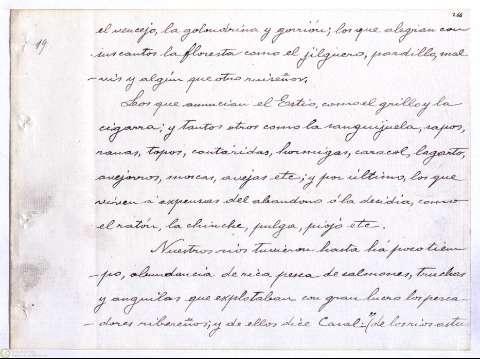 266
19
el vencejo, la golondrina y gorrión; los que alegran con
sus cantos la floresta como el jilguero, pardillo, mal
-vis y algún que otro ruiseñor.
Los que anuncian el Estío, como el grillo y la
cigarra; y tantos otros como la sanguijuela, sapos,
ranas, topos, cantáridas, hormigas, caracol, lagarto,
avejorros, moscas, avejas etc; y por último, los que
viven á expensas del abandono ó la desidia, como
el ratón, la chinche, pulga, piojo etc.
Nuestros rios tuvieron hasta há poco tiem-
-po, abundancia de rica pesca de salmones, truchas
y anguilas que explotaban con gran lucro los pesca-
-dores ribereños; y de ellos dice (de los rios astu